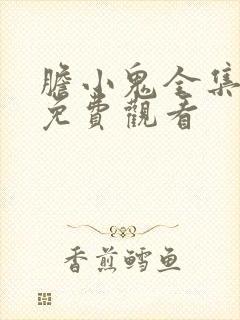 膽小鬼全集
免費觀看
香煎鱈鱼